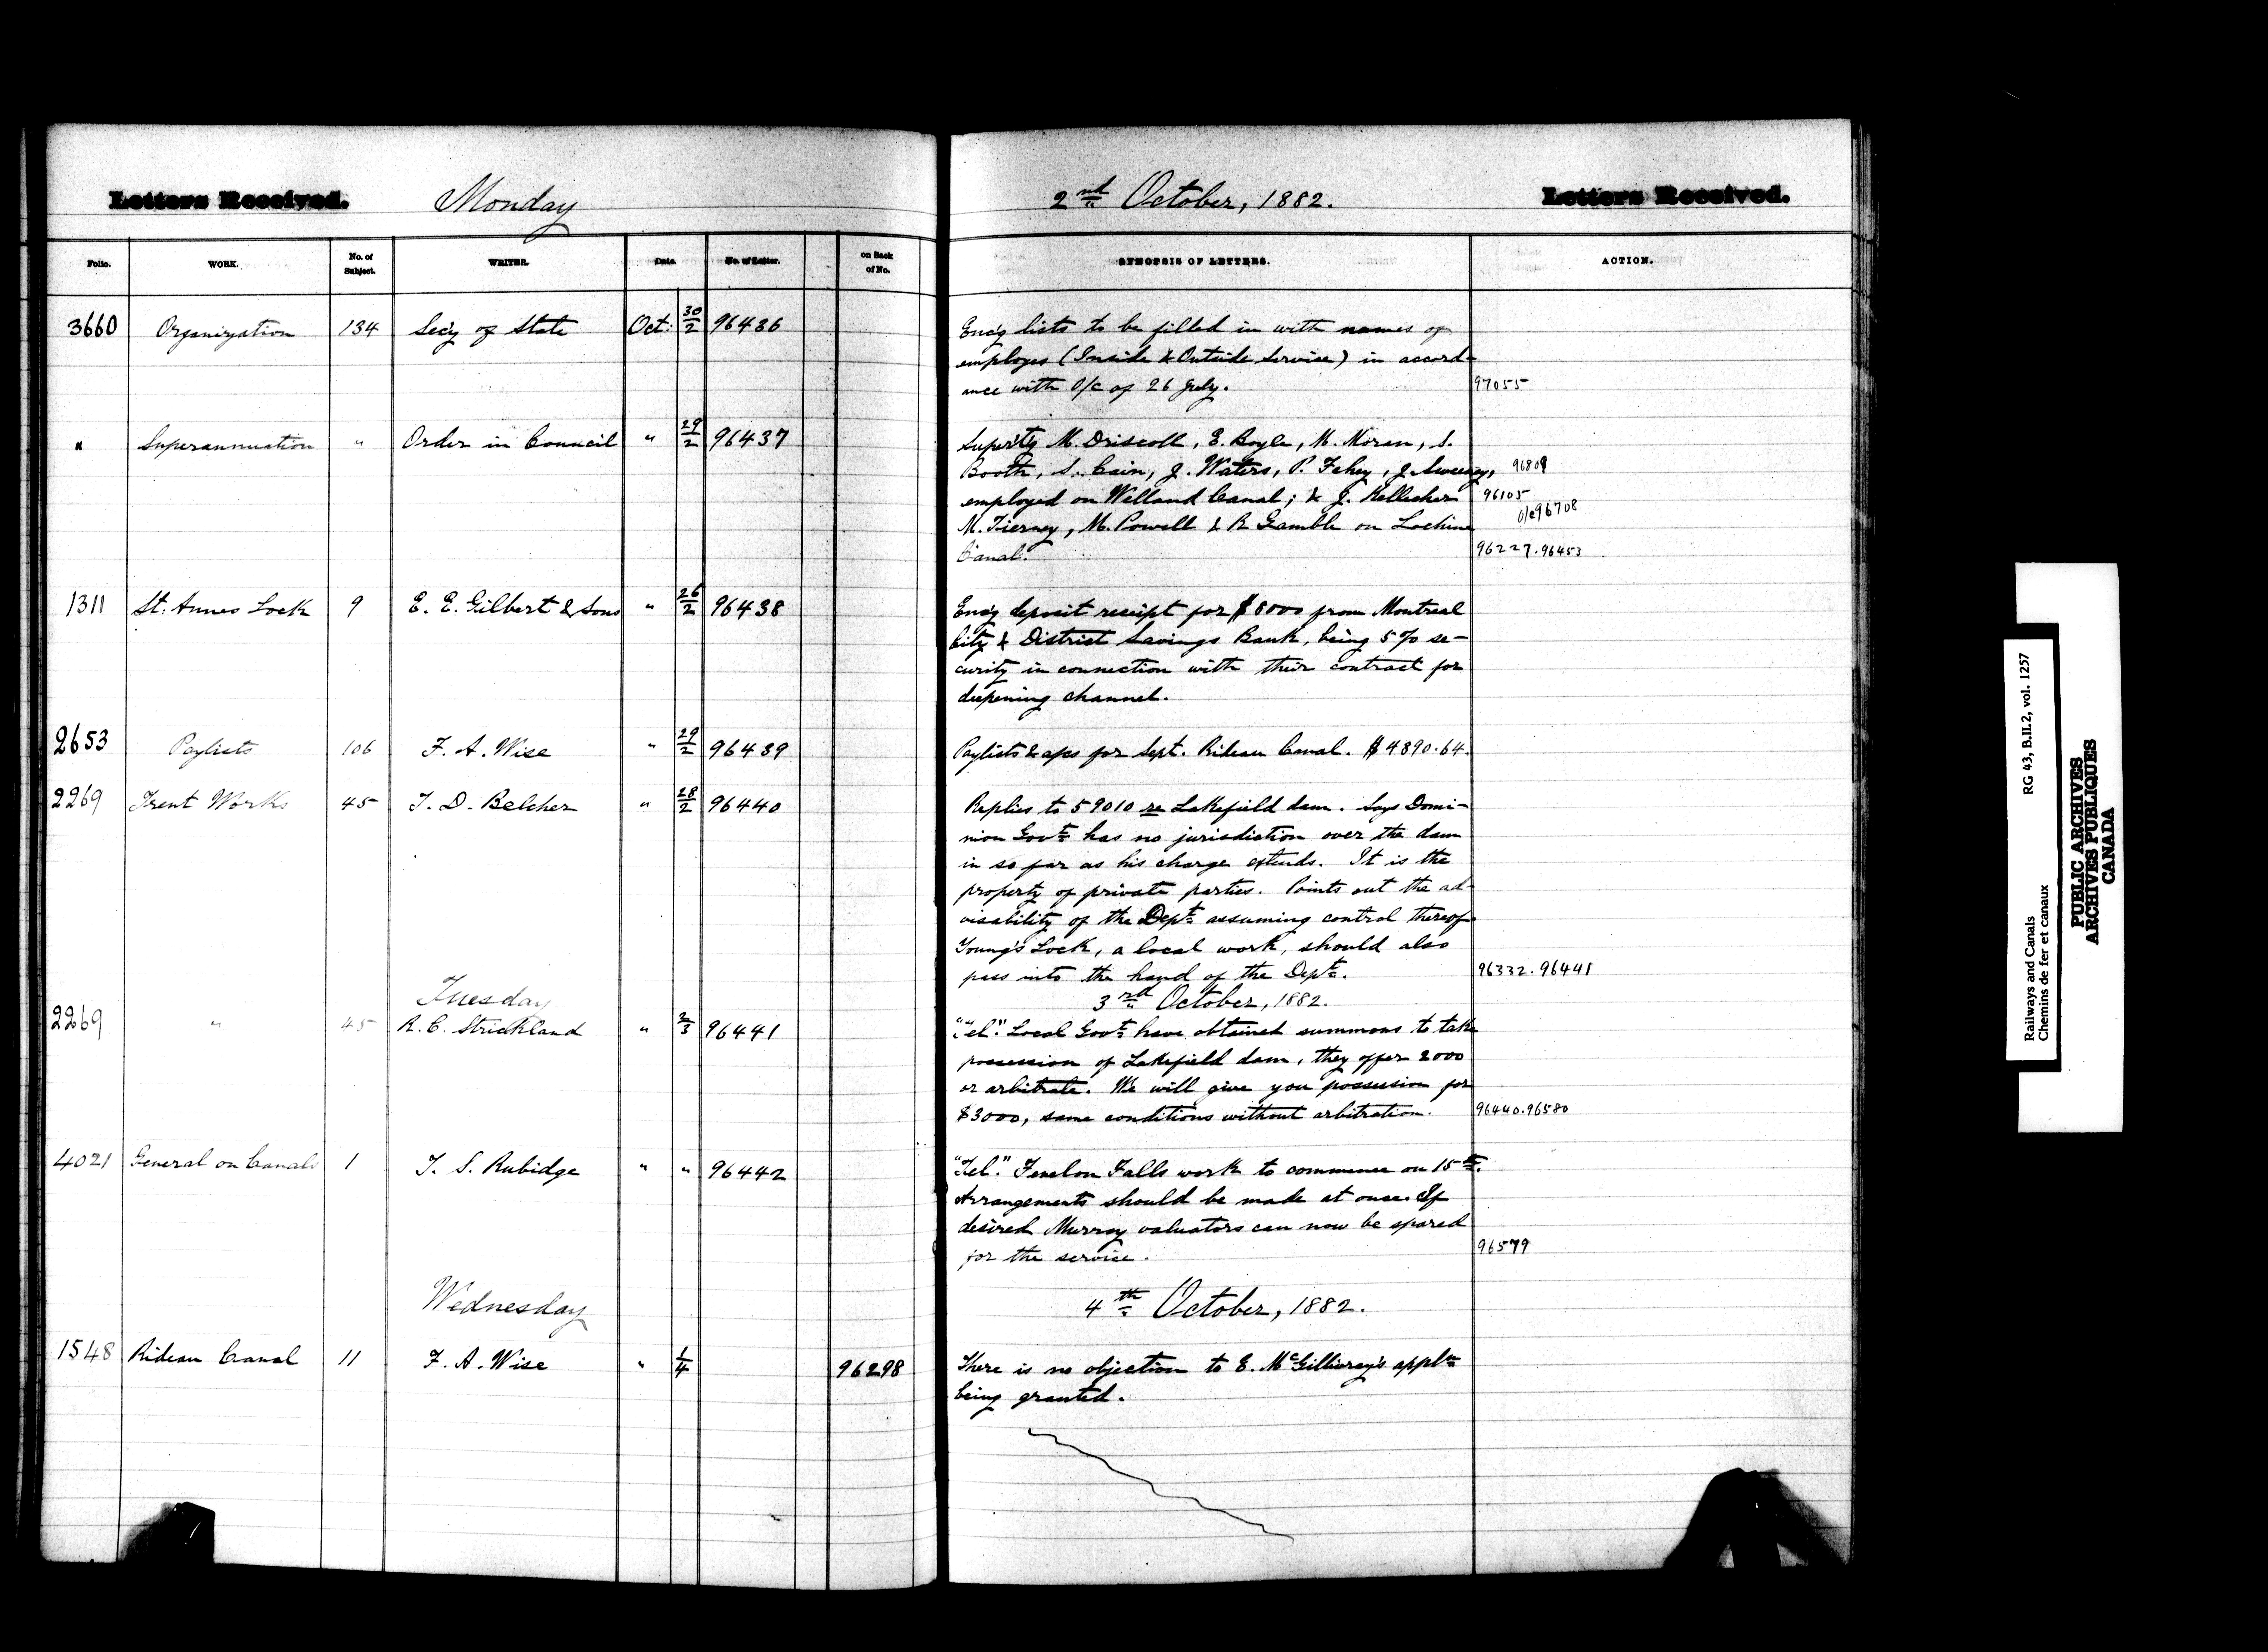 Letters Received. Monday 2nd October, 1882. Letters Received.
Folio. WORK. No. of Subject. WRITER. Date. No. of Letter. on Back of No. SYNOPSIS OF LETTERS. ACTION.
3660 Organization 134 Sec'y of State Oct. 30/2 96436 Enc'g lists to be filled in with names of
employes (Inside & Outside Service) in accord-
ance with O/c of 26 July. 97055
" Superannuation " Order in Council " 29/2 96437 Super'tg M. Driscoll, E. Boyle, M. Moran, S.
Booth, S. Cain, J. Waters, P. Fehey, J. Sweeney, 96809
employed on Welland Canal; & J. Kellecher 96105
M. Tierney, M. Powell & R Gamble on Lachine O/c 96708
Canal. 96227.96453
1311 St. Annes Lock 9 E. E. Gilbert & Sons " 26/2 96438 Enc'g deposit receipt for $8000 from Montreal
City & District Savings Bank, being 5 % se-
curity in connection with their contract for
deepening channel.
2653 Paylists 106 F. A. Wise " 29/2 96439 Paylists & a/cs for Sept. Rideau Canal. $4890.64.
2269 Trent Works 45 T. D. Belcher " 28/2 96440 Replies to 59010 re Lakefield dam. Says Domi-
nion Govt has no jurisdiction over the dam
in so far as his charge extends. It is the
property of private parties. Points out the ad-
visability of the Dept assuming control thereof
Young's Lock, a local work, should also
pass into the hand of the Dept. 96332.96441
Tuesday 3rd October, 1882.
2269 " 45 R. C. Strickland " 2/3 96441 "Tel." Local Govt have obtained summons to take
possession of Lakefield dam, they offer 2000
or arbitrate. We will give you possession for
$3000, same conditions without arbitration. 96440.96580
4021 General on Canals 1 T. S. Rubidge " " 96442 "Tel." Fenelon Falls work to commence on 15th.
Arrangements should be made at once. If
desired Murray valuators can now be spared
for the service. 96579
Wednesday 4th October, 1882.
1548 Rideau Canal 11 F. A. Wise " 1/4 96298 There is no objection to E. McGillivray's appltn
being granted.
Railways and Canals RG 43, B.II.2, vol. 1257
Chemins de fer et canaux
PUBLIC ARCHIVES
ARCHIVES PUBLIQUES
CANADA